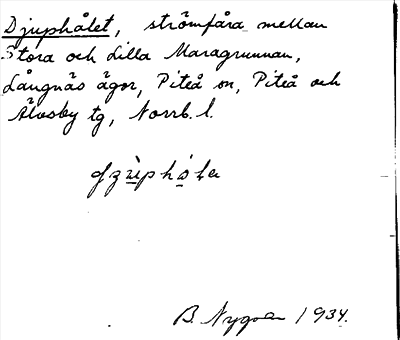 Djuphålet, strömfåra mellan
Stora och Lilla Maragrunnan,
Långnäs ägor, Piteå sn, Piteå och
Älvsby tg, Norrb. l.
B. Nygren 1934.